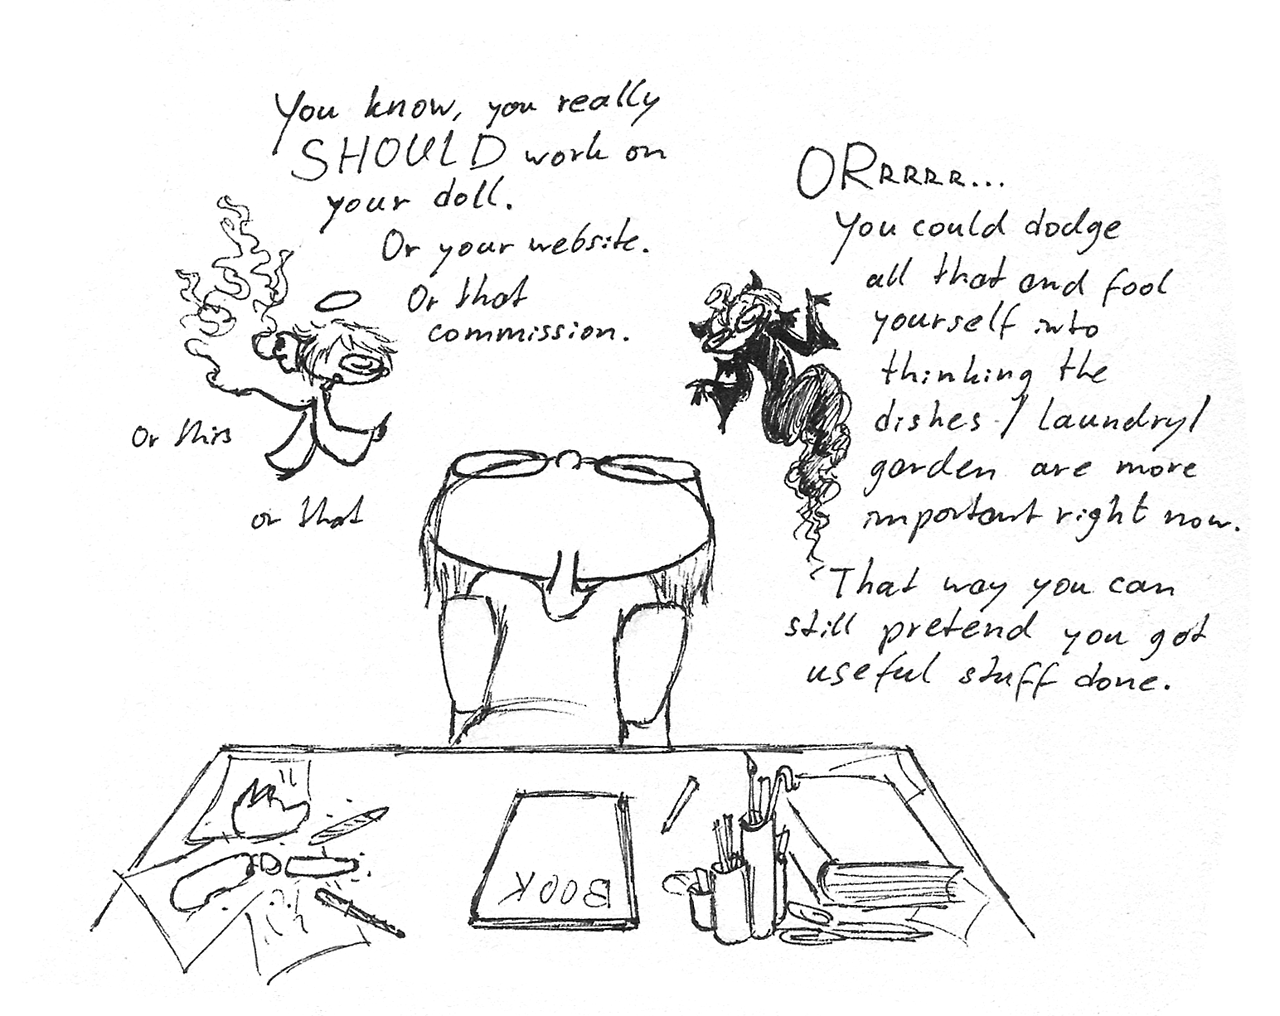 You know, you really
SHOULD work on
your doll.
Or your website.
Or that
commission.
Or this
or that
ORRRRR...
You could dodge
all that and fool
yourself into
thinking the
dishes / laundry /
garden are more
important right now.
That way you can
still pretend you got
useful stuff done.
BOOK